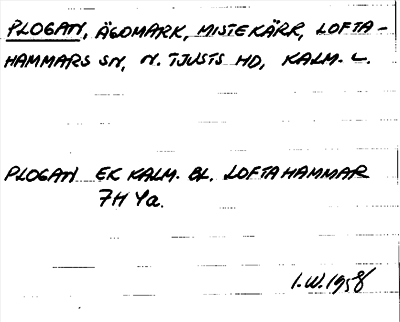 PLOGAN, ÄGOMARK, MISTEKÄRR, LOFTA-
HAMMARS SN, N. TJUSTS HD, KALM. L.
PLOGAN EK KALM. BL. LOFTAHAMMAR
7H 4a.
I.W. 1958